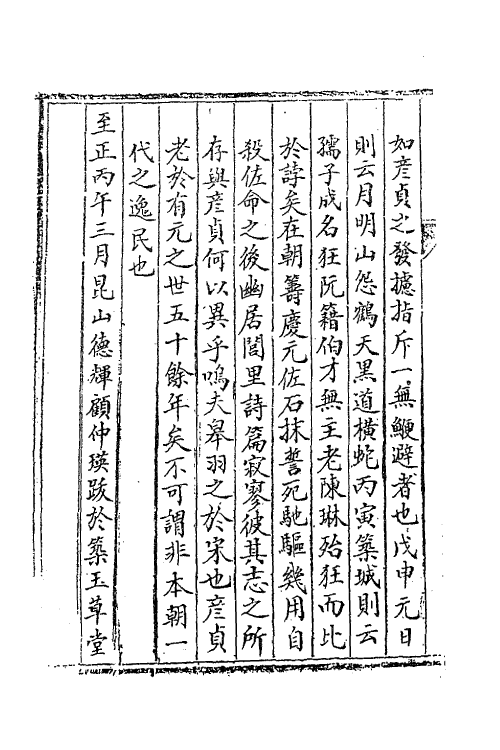 如彥貞之發攄指斥一無鯁避者也戊申元日
則云月明山怨鶴天黑道橫蛇丙寅築城則云
孺子成名狂阮籍伯才無主老陳琳殆狂而比
於誖矣在朝籌慶元佐石抹誓死馳驅幾用自
殺佐命之後幽居閭里詩篇寂寥彼其志之所
存與彥貞何以異乎嗚夫皋羽之於宋也彥貞
老於有元之世五十餘年矣不可謂非本朝一
代之逸民也
至正丙午三月昆山德輝顧仲瑛跋於築玉草堂